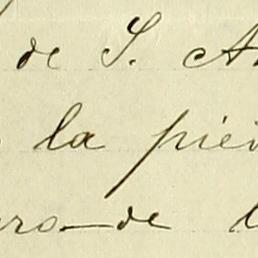 de S. A
la pie
ro-de l